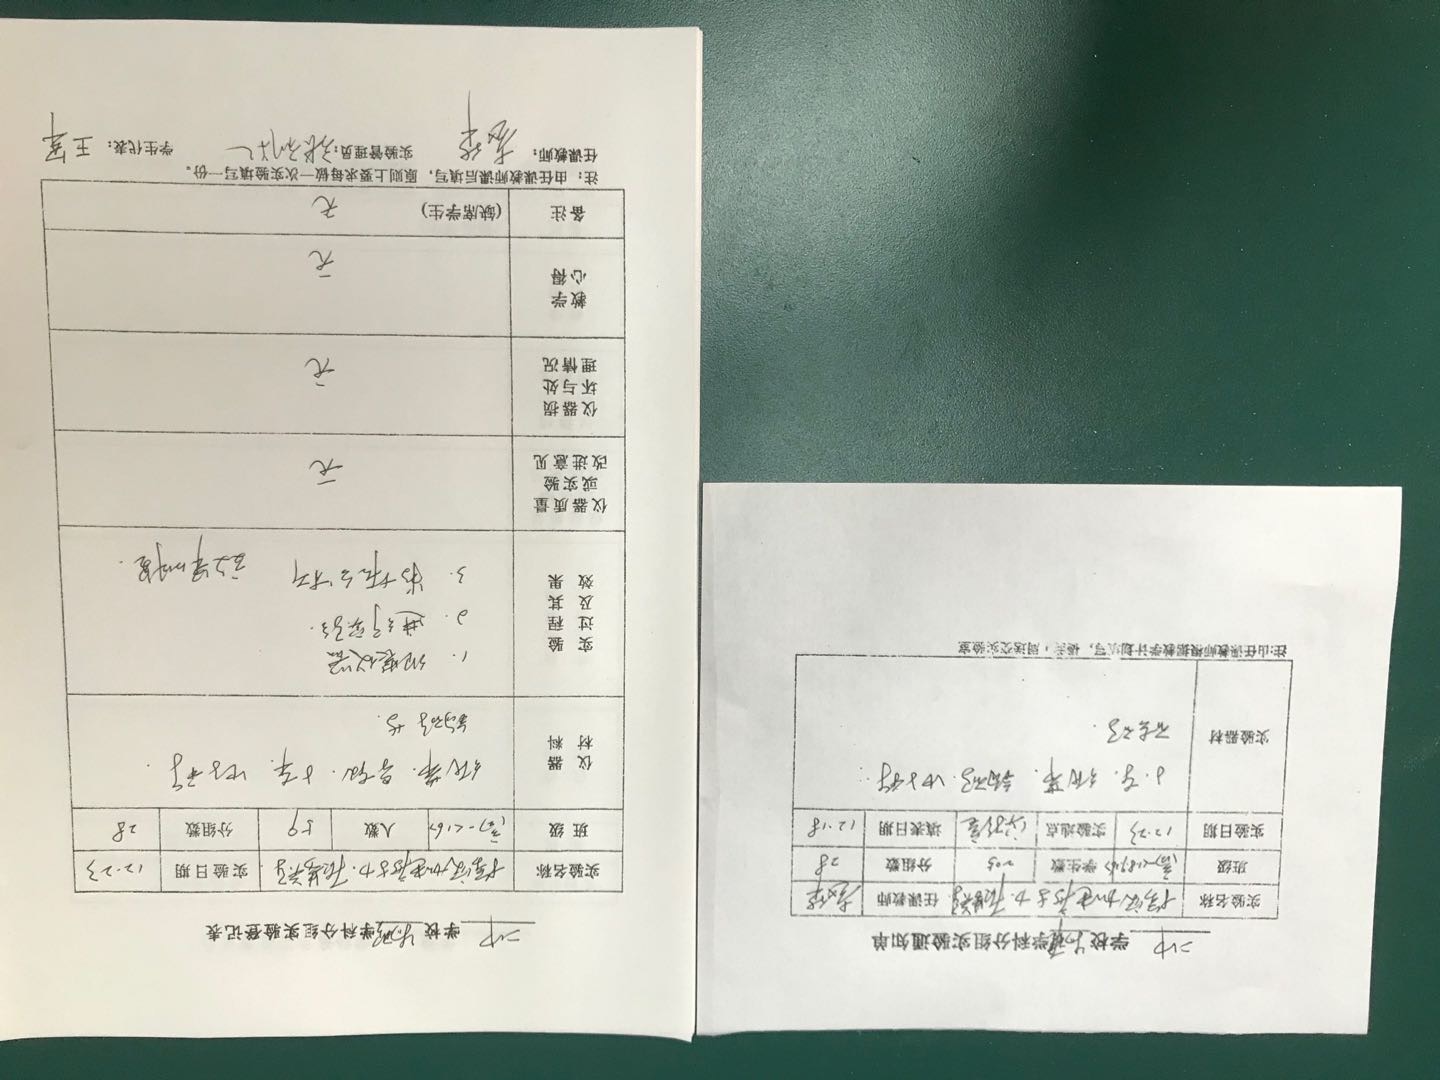 二中 学校 物理 学科分组实验通知单
实验名称 探究加速度与力、质量关系 任课教师
班级 学生数 205 分组数 28
实验日期 12.23 实验地点 实验室 填表日期 12.18
实验器材
小车. 纸带.
注:由任课教师根据教学计划填写, 提前一周送交实验室
二中 学校 物理 学科分组实验登记表
实验名称 探究加速度与力、质量关系 实验日期 12.23
班 级 高一<16> 人数 59 分组数 28
仪 器 材 料
纸带. 小车.
实 验 过 程 及 其 效 果
1. 组装仪器
2. 进行实验
3. 数据分析
仪器质量或实验改进意见 无
仪器损坏与处理情况 无
教学心得 无
备注 (缺席学生) 无
注:由任课教师课后填写,原则上要求每做一次实验填写一份。
任课教师: 实验管理员: 学生代表:王军